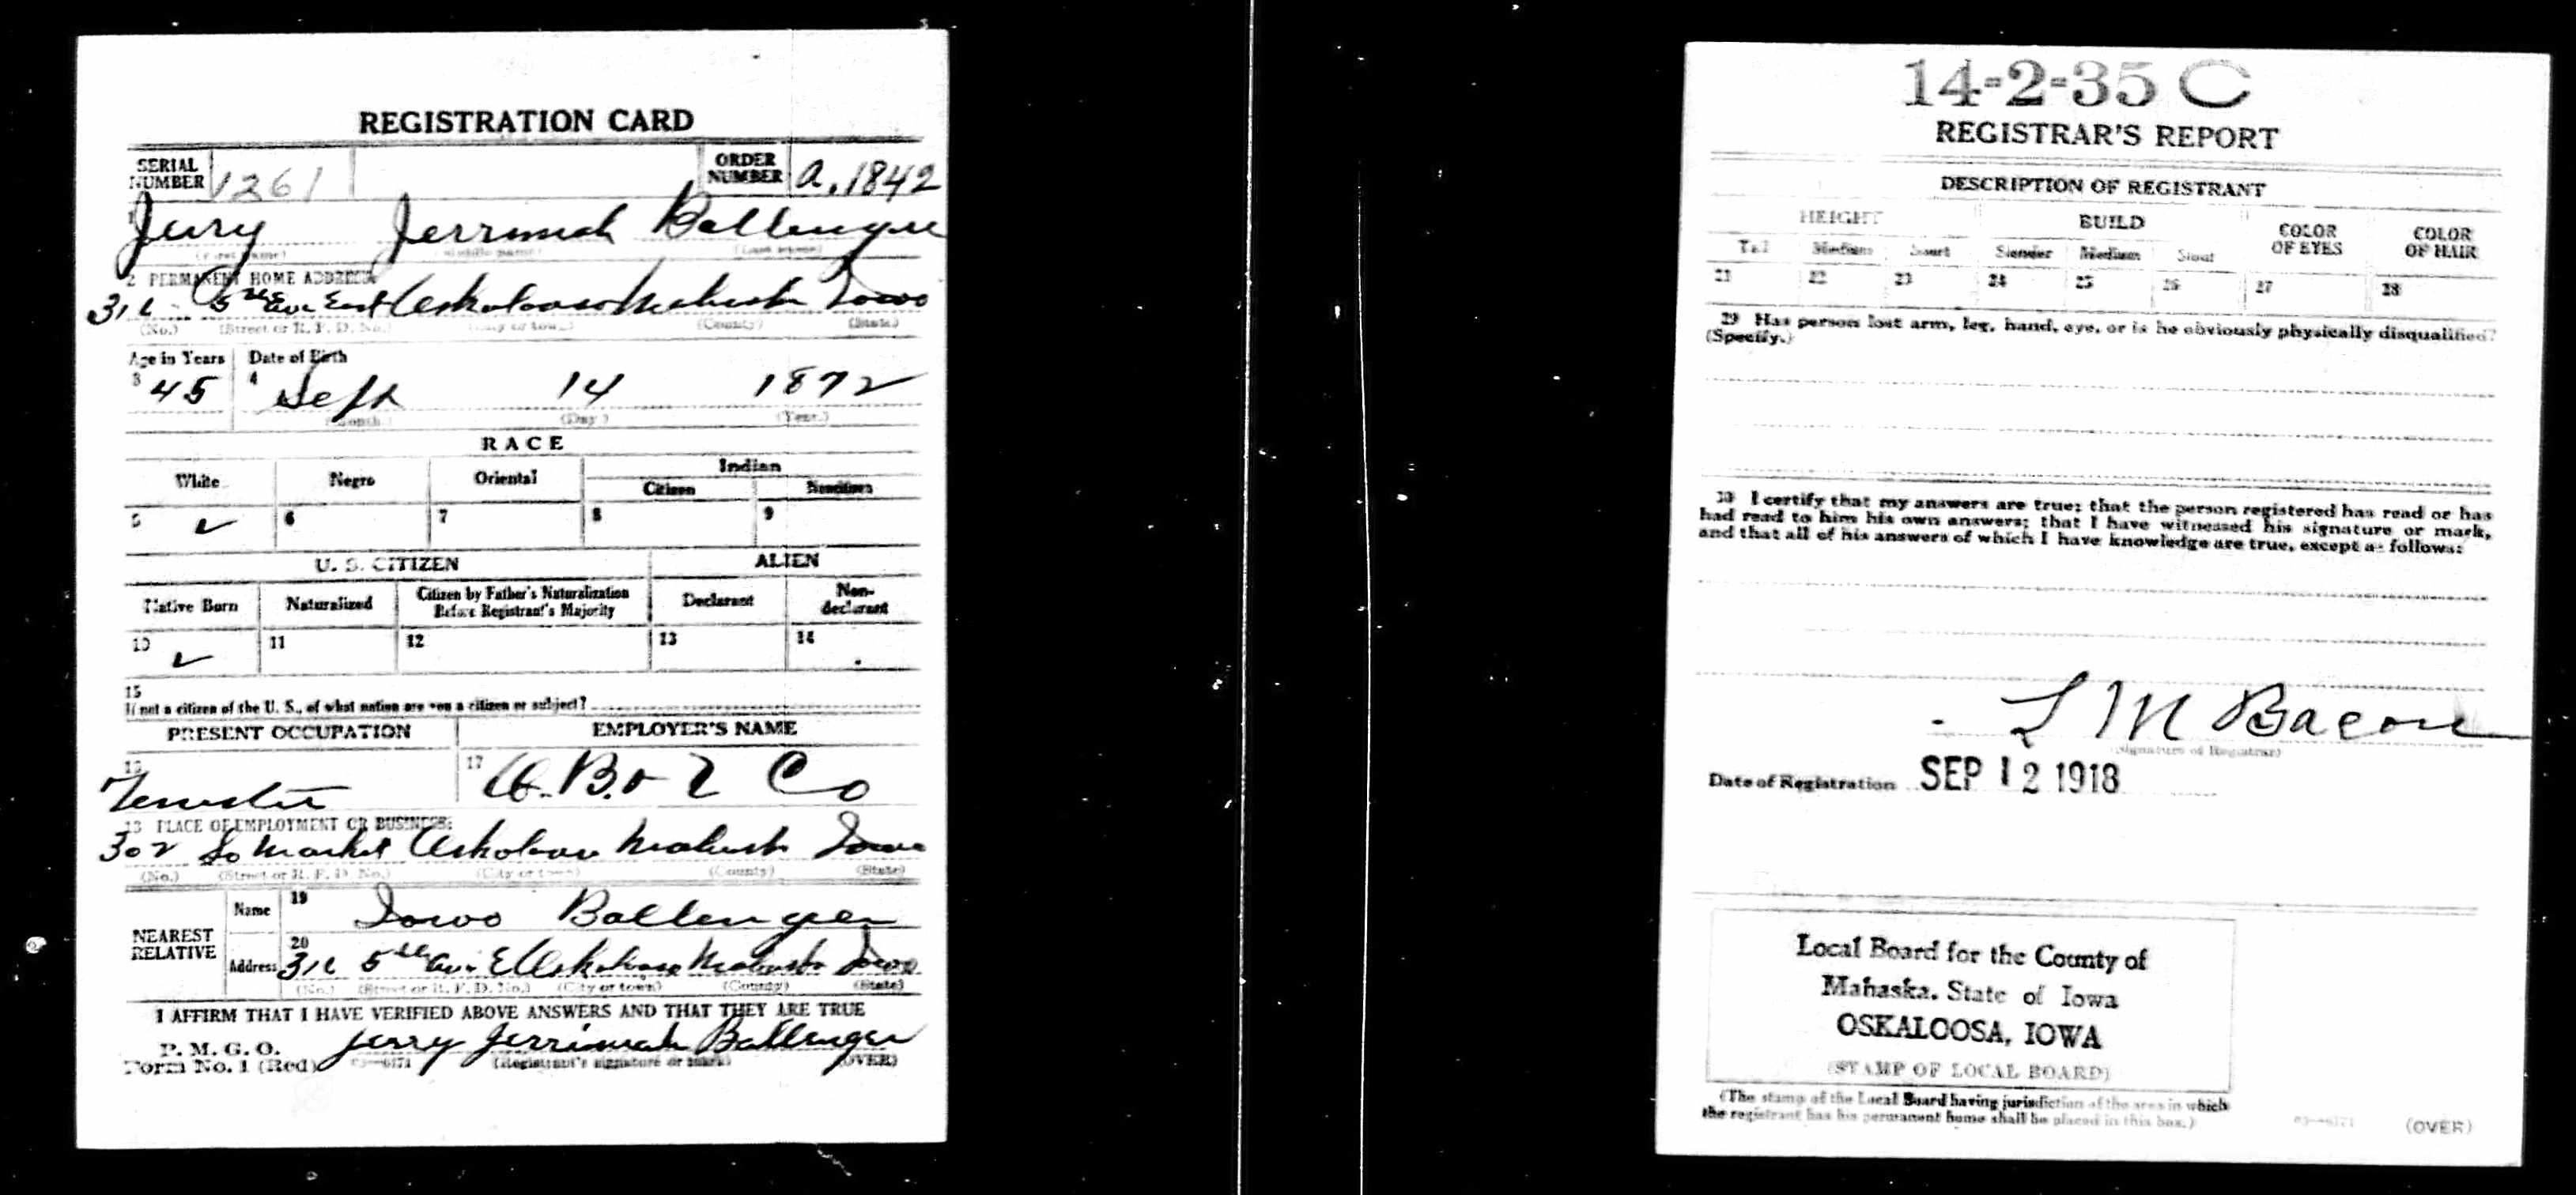 REGISTRATION CARD
SERIAL NUMBER 1261 ORDER NUMBER a. 1842
1 Jerry Jerrimiah Ballenger
(First name) (Middle name) (Last name)
2 PERMANENT HOME ADDRESS:
5th Ave East Oskaloosa Mahaska Iowa
(No.) (Street or R. F. D. No.) (City or town) (County) (State)
Age in Years Date of Birth
3 45 4 Sept 14 1872
(Month.) (Day.) (Year.)
RACE
White Negro Oriental Indian
Citizen Noncitizen
5 ✓ 6 7 8 9
U. S. CITIZEN ALIEN
Native Born Naturalized Citizen by Father's Naturalization Before Registrant's Majority Declarant Non-declarant
10 ✓ 11 12 13 14
15
If not a citizen of the U. S., of what nation are you a citizen or subject?
PRESENT OCCUPATION EMPLOYER'S NAME
16 Teamster 17 B. & T Co
18 PLACE OF EMPLOYMENT OR BUSINESS:
302 So Market Oskaloosa Mahaska Iowa
(No.) (Street or R. F. D. No.) (City or town) (County) (State)
NEAREST RELATIVE
Name 19 Iowa Ballenger
Address 20 5th Ave E Oskaloosa Mahaska Iowa
(No.) (Street or R. F. D. No.) (City or town) (County) (State)
I AFFIRM THAT I HAVE VERIFIED ABOVE ANSWERS AND THAT THEY ARE TRUE
P. M. G. O.
Form No. 1 (Red) Jerry Jerrimiah Ballenger
(Registrant's signature or mark) (OVER)
14-2-35 C
REGISTRAR'S REPORT
DESCRIPTION OF REGISTRANT
HEIGHT BUILD COLOR OF EYES COLOR OF HAIR
Tall Medium Short Slender Medium Stout
21 22 23 24 25 26 27 28
29 Has person lost arm, leg, hand, eye, or is he obviously physically disqualified?
(Specify.)
30 I certify that my answers are true; that the person registered has read or has
had read to him his own answers; that I have witnessed his signature or mark,
and that all of his answers of which I have knowledge are true, except as follows:
L M Bacon
(Signature of Registrar)
Date of Registration SEP 12 1918
Local Board for the County of
Mahaska. State of Iowa
OSKALOOSA, IOWA
(STAMP OF LOCAL BOARD)
(The stamp of the Local Board having jurisdiction of the area in which
the registrant has his permanent home shall be placed in this box.)
(OVER)